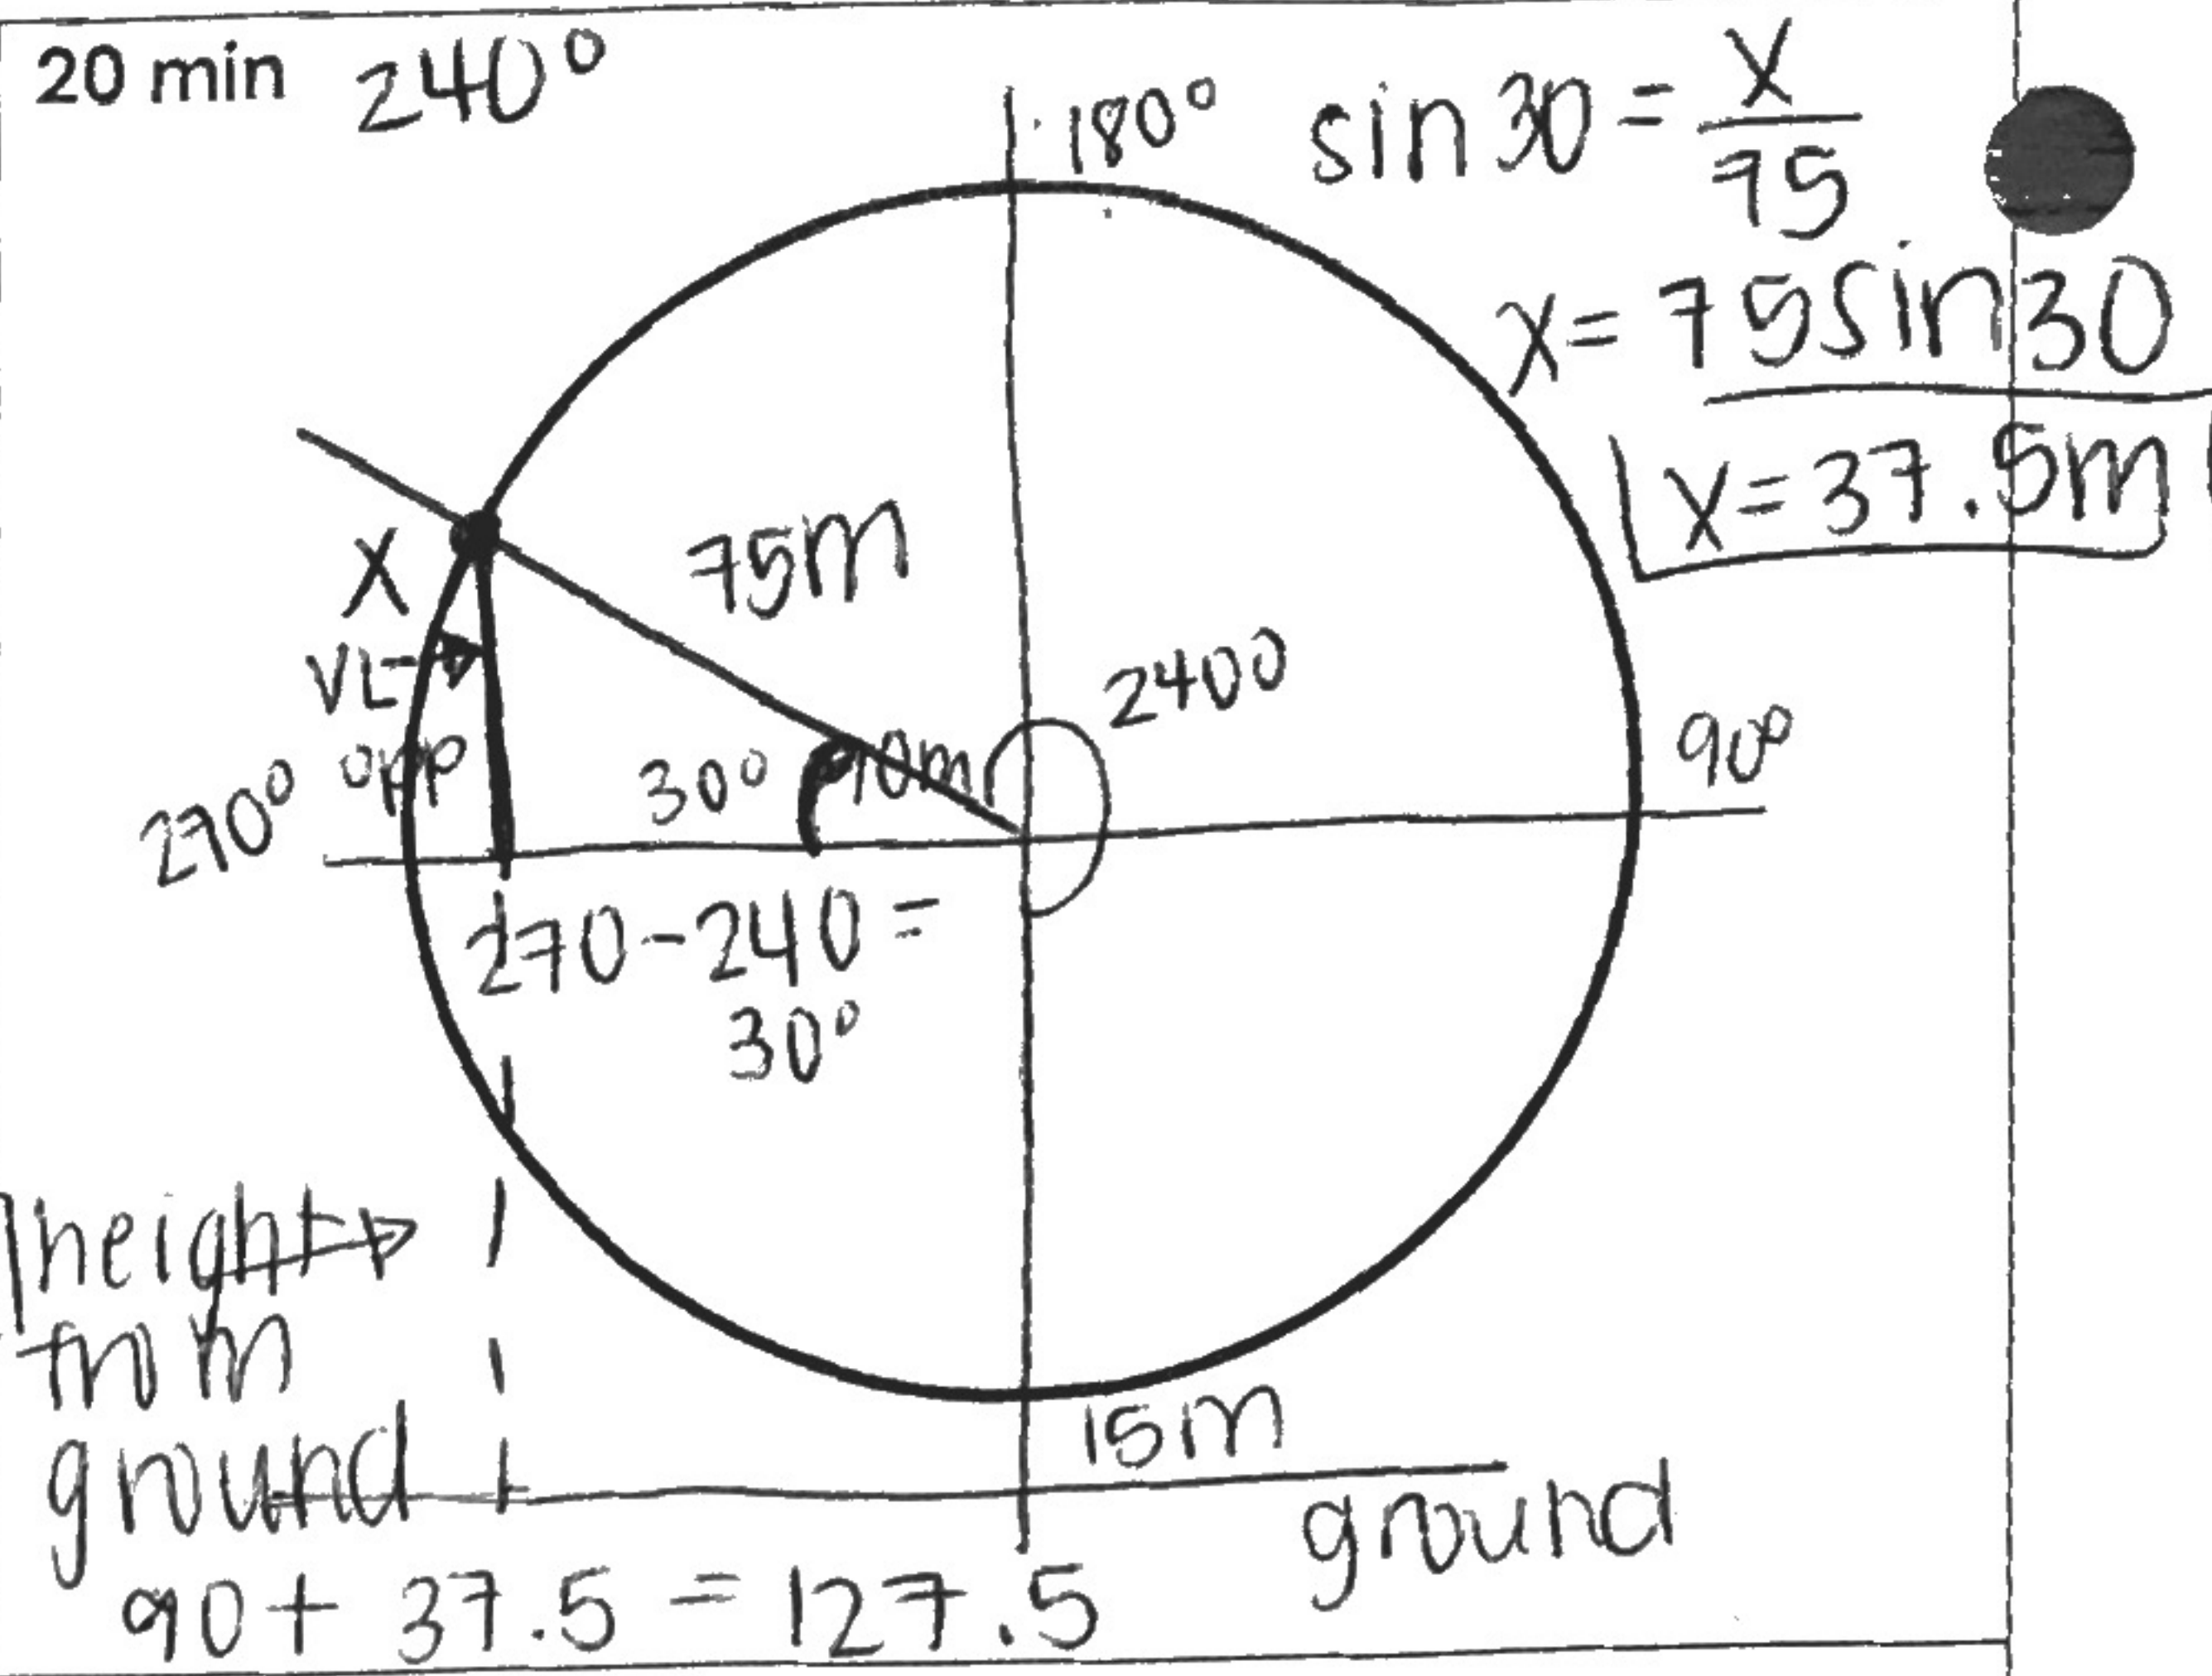 20 min 240°
180°
sin 30 = x/75
x = 75 sin 30
x = 37.5m
X
75m
VL
opp
270°
30°
90m
2400
90°
270-240 =
30°
height
from
ground
15m
ground
90 + 37.5 = 127.5